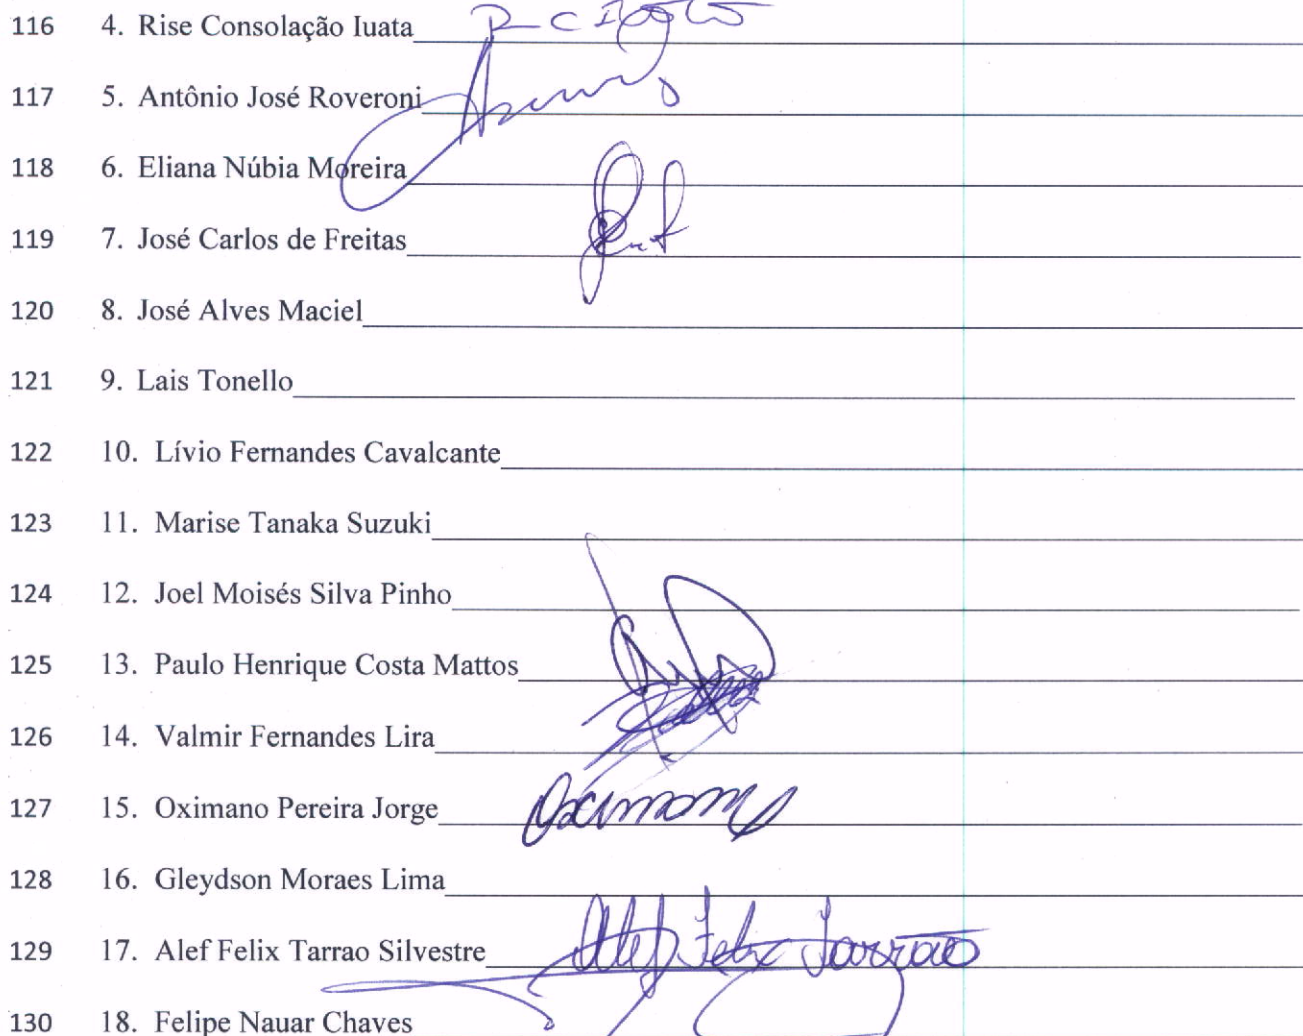 116 4. Rise Consolação Iuata
117 5. Antônio José Roveroni
118 6. Eliana Núbia Moreira
119 7. José Carlos de Freitas
120 8. José Alves Maciel
121 9. Lais Tonello
122 10. Lívio Fernandes Cavalcante
123 11. Marise Tanaka Suzuki
124 12. Joel Moisés Silva Pinho
125 13. Paulo Henrique Costa Mattos
126 14. Valmir Fernandes Lira
127 15. Oximano Pereira Jorge Oximano
128 16. Gleydson Moraes Lima
129 17. Alef Felix Tarrao Silvestre Alef Felix Tarrão
130 18. Felipe Nauar Chaves